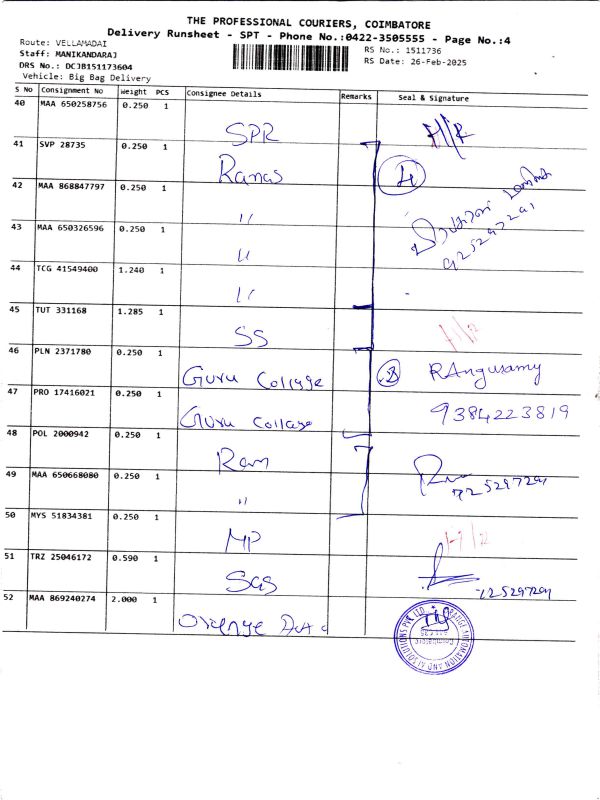 THE PROFESSIONAL COURIERS, COIMBATORE
Delivery Runsheet - SPT - Phone No.:0422-3505555 - Page No.:4
Route: VELLAMADAI
RS No.: 1511736
Staff: MANIKANDARAJ
RS Date: 26-Feb-2025
DRS No.: DCJB151173604
Vehicle: Big Bag Delivery
S No Consignment No Weight PCS Consignee Details Remarks Seal & Signature
40 MAA 650258756 0.250 1 SPR
41 SVP 28735 0.250 1 Ramas 4
42 MAA 868847797 0.250 1 "
43 MAA 650326596 0.250 1 " 925297291
44 TCG 41549400 1.240 1 "
45 TUT 331168 1.285 1 SS
46 PLN 2371780 0.250 1 Guru Collage 2 RAngusamy
47 PRO 17416021 0.250 1 Guru Collage 9384223819
48 POL 2000942 0.250 1 Ram
49 MAA 650668080 0.250 1 " 725297291
50 MYS 51834381 0.250 1 MP
51 TRZ 25046172 0.590 1 SGS 725297291
52 MAA 869240274 2.000 1 Orenge Data
ORANGE AUTOMATION AND AI SOLUTIONS PVT LTD